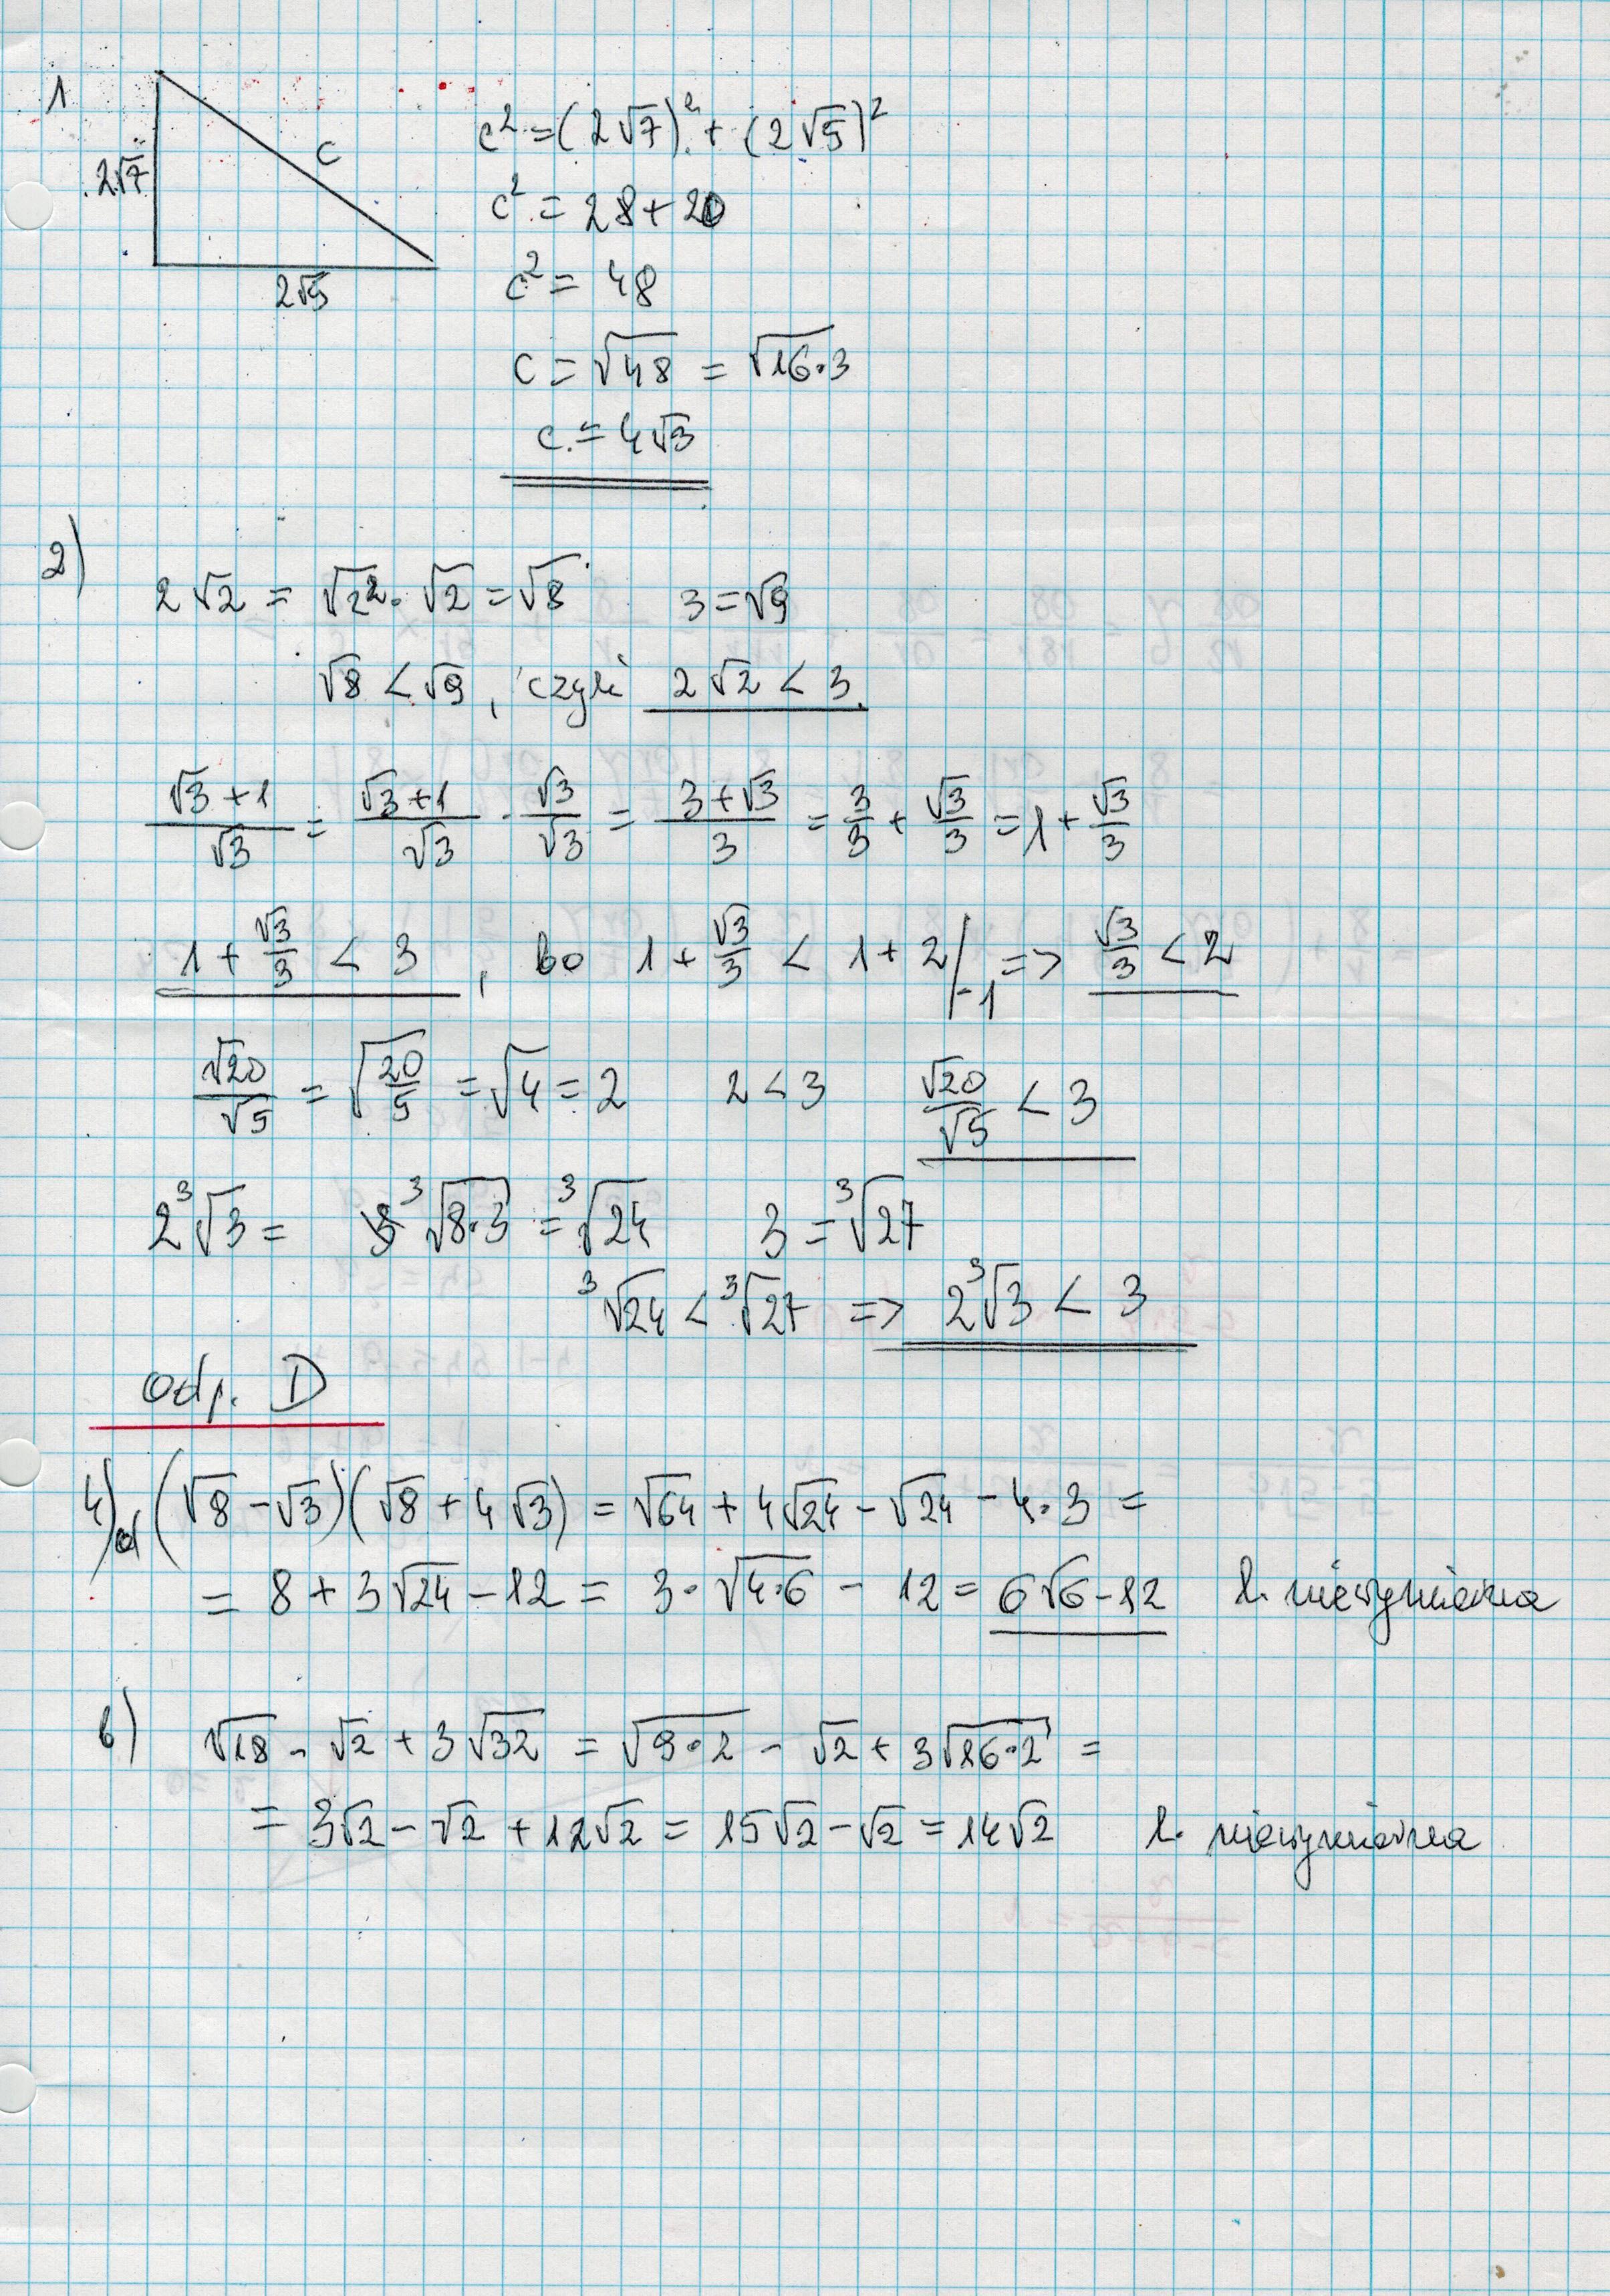 1
c
2√7
2√5
c² = (2√7)² + (2√5)²
c² = 28 + 20
c² = 48
c = √48 = √16·3
c = 4√3
2)
2√2 = √2²·√2 = √8 3 = √9
√8 < √9, czyli 2√2 < 3
(√3+1)/√3 = (√3+1)/√3 · √3/√3 = (3+√3)/3 = 3/3 + √3/3 = 1 + √3/3
1 + √3/3 < 3, bo 1 + √3/3 < 1 + 2 /-1 => √3/3 < 2
√20/√5 = √(20/5) = √4 = 2 2 < 3 √20/√5 < 3
2∛3 = ∛8·3 = ∛24 3 = ∛27
∛24 < ∛27 => 2∛3 < 3
Odp. D
4) a (√8 - √3)(√8 + 4√3) = √64 + 4√24 - √24 - 4·3 =
= 8 + 3√24 - 12 = 3·√4·6 - 12 = 6√6 - 12 l. niewymierna
b) √18 - √2 + 3√32 = √9·2 - √2 + 3√16·2 =
= 3√2 - √2 + 12√2 = 15√2 - √2 = 14√2 l. niewymierna